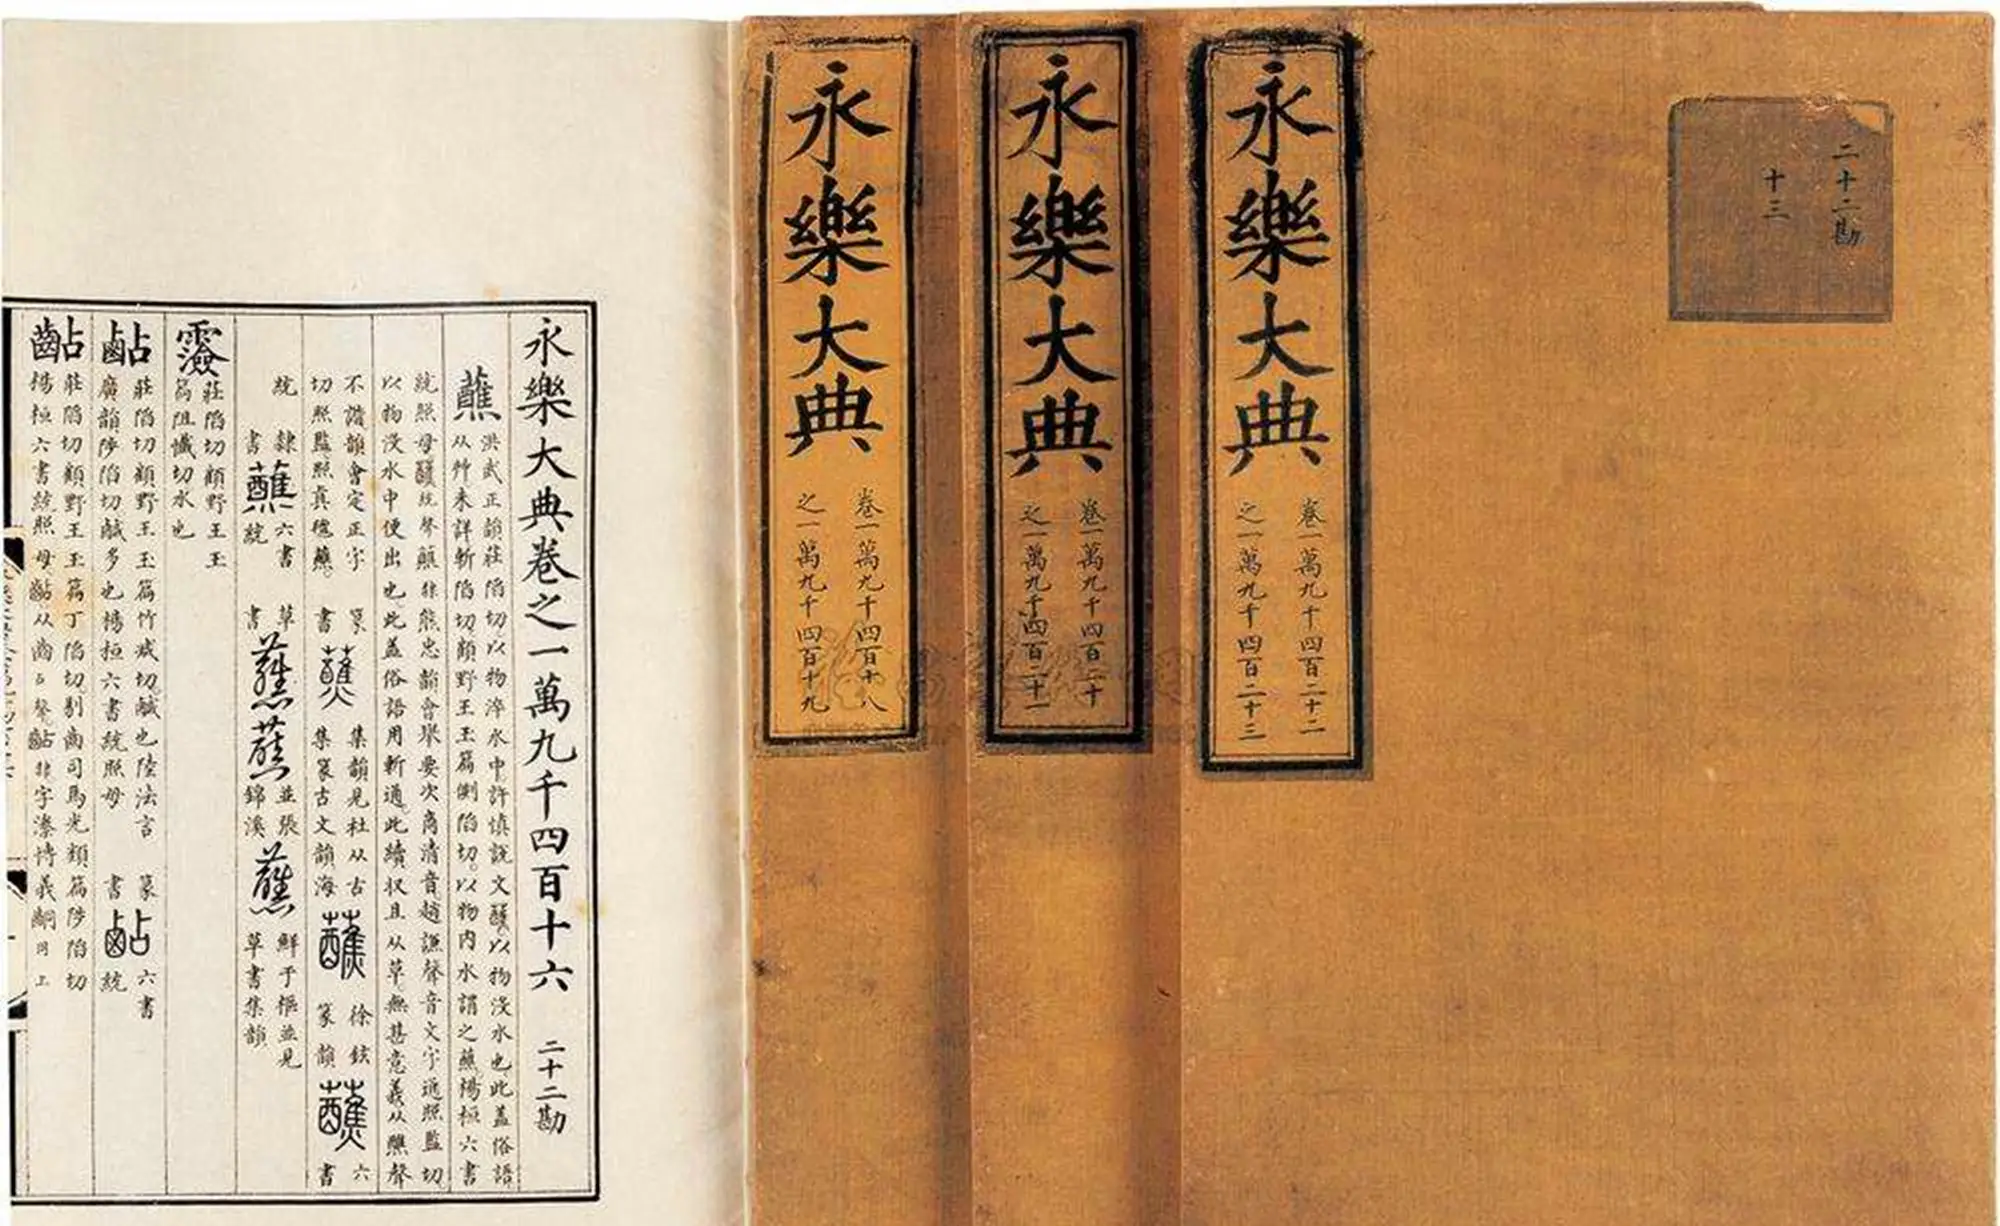 二十二勘
十三
永樂大典
卷一萬九千四百二十二
之一萬九千四百二十三
永樂大典
卷一萬九千四百二十
之一萬九千四百二十一
永樂大典
卷一萬九千四百十八
之一萬九千四百十九
永樂大典卷之一萬九千四百十六 二十二勘
蘸
洪武正韻莊陷切以物淬水中許慎說文醮以物沒水也此蓋俗語
从艸未詳斬陷切顧野王玉篇側陷切以物內水謂之蘸楊桓六書
統照母醮統聲蘸非熊忠韻會舉要次商清音趙謙聲音文字通照監切
以物沒水中便出也此蓋俗語用斬通此續収且从草無甚意義从醮聲
不諧韻會定正字
切照監照真氊蘸
篆書
蘸
集韻見杜从古
集篆古文韻海
蘸
徐鉉
篆韻
蘸
六書
統
隸書
蘸
六書
統
草書
蘸蘸
並張
錦溪
蘸
鮮于樞並見
草書集韻
莊陷切顧野王玉
篇阻懺切水也
莊陷切顧野王玉篇竹咸切鹹也陸法言
廣韻陟陷切鹹多也楊桓六書統照母
篆書
六書
統
莊陷切顧野王玉篇丁陷切剔齒司馬光類篇陟陷切
楊桓六書統照母 从齒占聲 非字 博義 同上